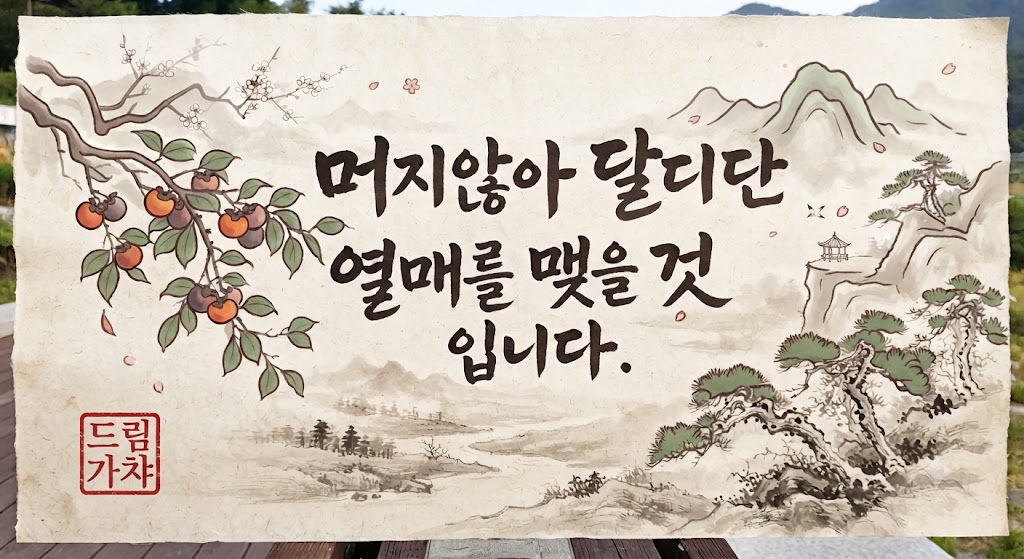 머지않아 달디단
열매를 맺을 것
입니다.
드림
가챠